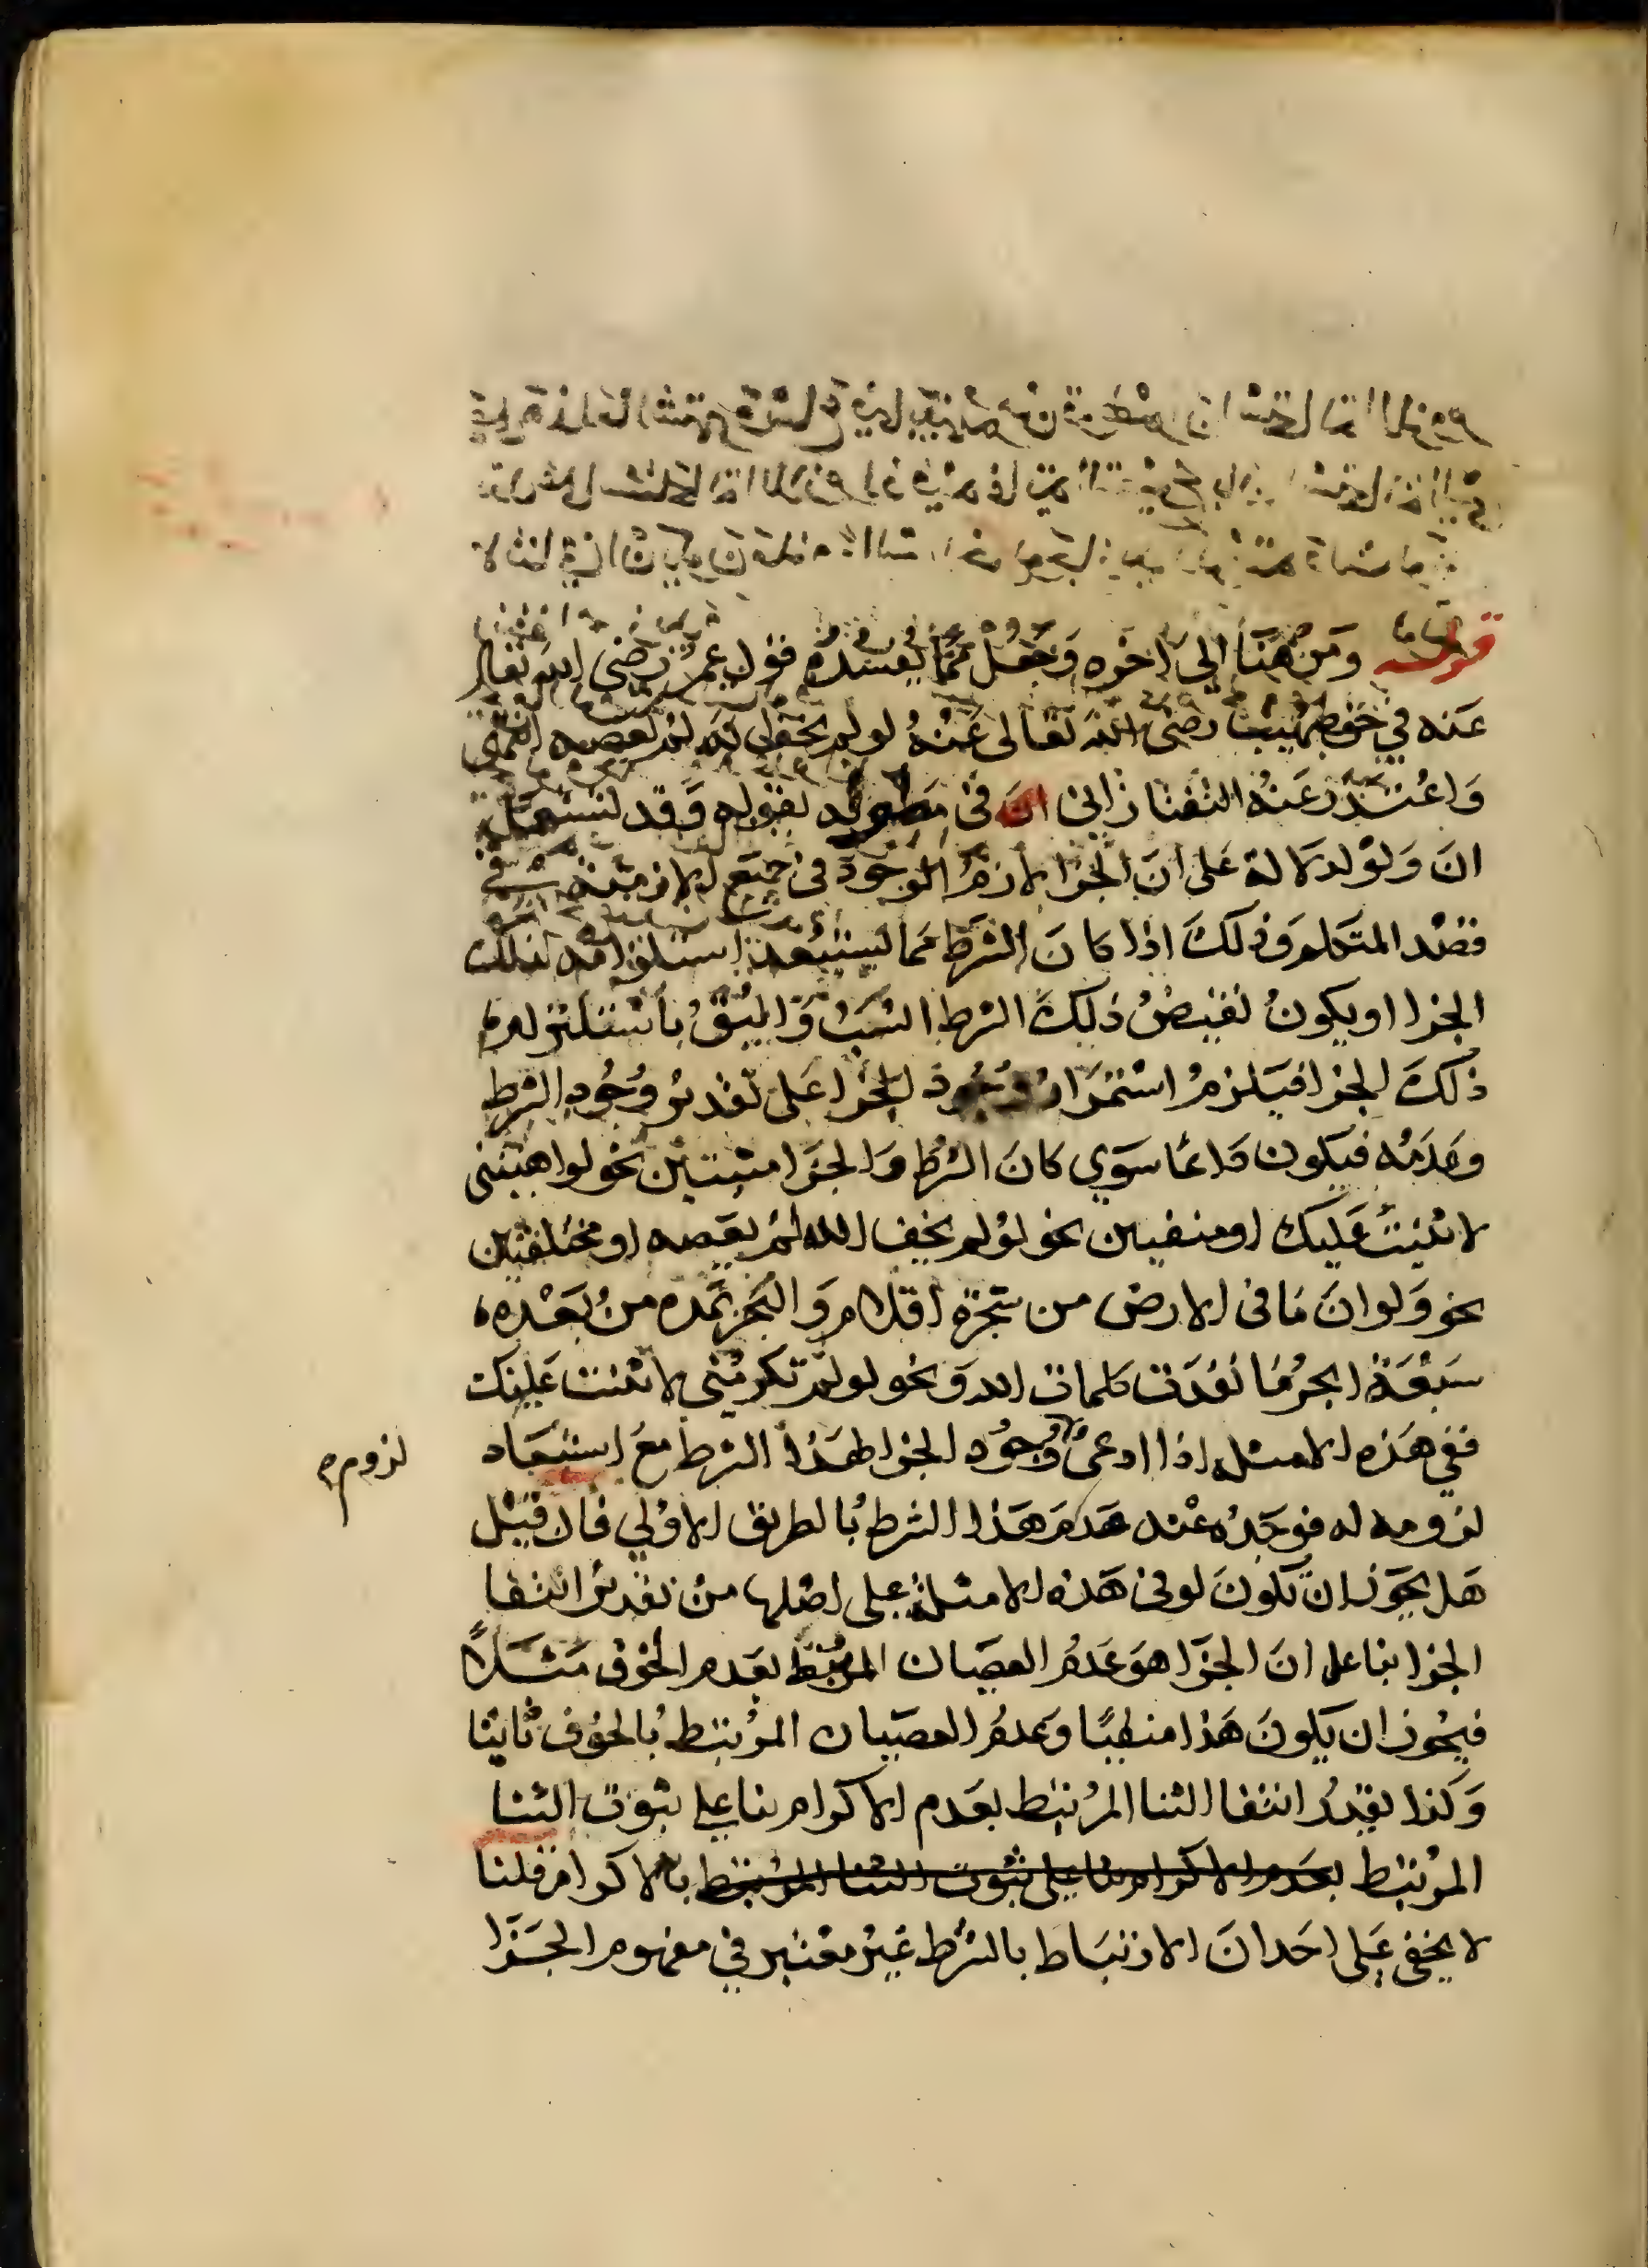 قوله ومن هنا الى اخره وجعل مما يفسده قول عمر رضى الله تعالى
عنه في حق صهيب رضى الله تعالى عنه لو لم يخف الله لم يعصه انتهى
واعتذر عنه التفتازانى فى مطوله بقوله وقد تستعمل
ان ولو لدلالة على ان الجزا لازم الوجود فى جميع الازمنة فى
قصد المتكلم وذلك اذا كان الشرط مما يستبعد استلزامه لذلك
الجزا او يكون نقيض ذلك الشرط انسب واليق باستلزام
ذلك الجزا فيلزم استمرار وجود الجزا على تقدير وجود الشرط
وعدمه فيكون دائما سوى كان الشرط والجزا مثبتين نحو لو اهنتنى
لاثنيت عليك او منفيين نحو لو لم يخف الله لم يعصه او مختلفين
نحو ولو ان ما فى الارض من شجرة اقلام والبحر يمده من بعده
سبعة ابحر ما نفدت كلمات الله ونحو لو لم تكرمنى لاثنيت عليك
ففي هذه الامثلة اذا ادعى وجود الجزا لهذا الشرط مع استبعاد
لزومه
لزومه له فوجده عند عدم هذا الشرط بالطريق الاولي فان قيل
هل يجوز ان تكون لو فى هذه الامثلة على اصلها من تقدير انتفا
الجزا بنا على ان الجزا هو عدم العصيان المرتبط بعدم الخوف مثلاً
فيجوز ان يكون هذا منطبقًا وعدم العصيان المرتبط بالخوف ثابتا
وكذا يقدر انتفا الثنا المرتبط بعدم الاكرام بنا على ثبوت الثنا
المرتبط بعدم الاكرام بنا على ثبوت الثنا المرتبط بالاكرام قلنا
لا يخفى على احد ان الارتباط بالشرط غير معتبر في مفهوم الجزا